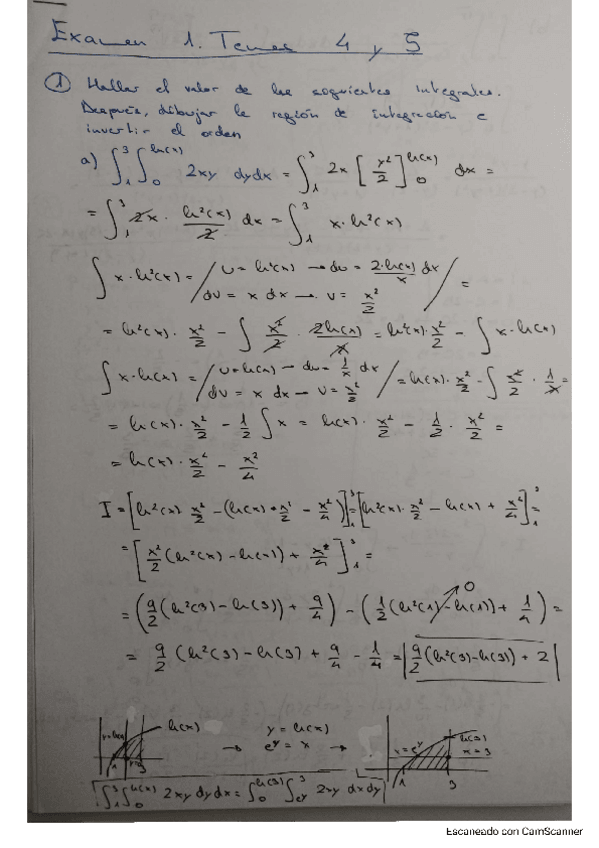 Examen 1. Temas 4 y 5
① Hallar el valor de las siguientes integrales.
Después, dibujar la región de integración e
invertir el orden
a) ∫₁³ ∫₀^ln(x) 2xy dydx = ∫₁³ 2x [y²/2]₀^ln(x) dx =
= ∫₁³ 2x · ln²(x)/2 dx = ∫₁³ x·ln²(x)
∫ x·ln²(x) = / u = ln²(x) → du = 2·ln(x)/x dx
dv = x dx → v = x²/2 / =
= ln²(x) · x²/2 - ∫ x²/2 · 2ln(x)/x = ln²(x)·x²/2 - ∫ x·ln(x)
∫ x·ln(x) = / u = ln(x) → du = 1/x dx
dv = x dx → v = x²/2 / = ln(x)·x²/2 - ∫ x²/2 · 1/x =
= ln(x) · x²/2 - 1/2 ∫ x = ln(x) · x²/2 - 1/2 · x²/2 =
= ln(x) · x²/2 - x²/4
I = [ln²(x) x²/2 - (ln(x) · x²/2 - x²/4)]₁³ = [ln²(x)·x²/2 - ln(x) + x²/4]₁³ =
= [x²/2 (ln²(x) - ln(x)) + x²/4]₁³ =
= (9/2 (ln²(3) - ln(3)) + 9/4) - (1/2 (ln²(1) - ln(1)) + 1/4) =
0
= 9/2 (ln²(3) - ln(3) + 9/4 - 1/4 = 9/2 (ln²(3) - ln(3)) + 2
ln(x)
1
3
→ y = ln(x)
e^y = x →
x = e^y
ln(3)
x = 3
1
3
∫₁³ ∫₀^ln(x) 2xy dy dx = ∫₀^ln(3) ∫_e^y^3 2xy dx dy
Escaneado con CamScanner